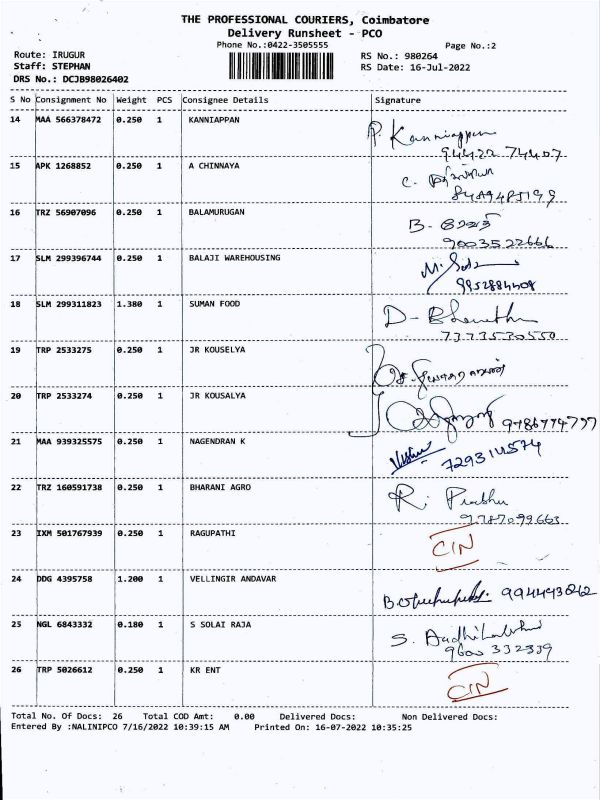 THE PROFESSIONAL COURIERS, Coimbatore
Delivery Runsheet - PCO
Phone No.:0422-3505555
Page No.:2
Route: IRUGUR
RS No.: 980264
Staff: STEPHAN
RS Date: 16-Jul-2022
DRS No.: DCJB98026402
S No Consignment No Weight PCS Consignee Details Signature
14 MAA 566378472 0.250 1 KANNIAPPAN P. Kanniappan
94422 74407
15 APK 1268852 0.250 1 A CHINNAYA C.
16 TRZ 56907096 0.250 1 BALAMURUGAN B-
9003522666
17 SLM 299396744 0.250 1 BALAJI WAREHOUSING M.
9952884408
18 SLM 299311823 1.380 1 SUMAN FOOD D-
7373530550
19 TRP 2533275 0.250 1 JR KOUSELYA
20 TRP 2533274 0.250 1 JR KOUSALYA 9786774797
21 MAA 939325575 0.250 1 NAGENDRAN K
22 TRZ 160591738 0.250 1 BHARANI AGRO R. Prabhu
9787099663
23 IXM 501767939 0.250 1 RAGUPATHI CIN
24 DDG 4395758 1.200 1 VELLINGIR ANDAVAR
25 NGL 6843332 0.180 1 S SOLAI RAJA S.
9600 332339
26 TRP 5026612 0.250 1 KR ENT CIN
Total No. Of Docs: 26 Total COD Amt: 0.00 Delivered Docs: Non Delivered Docs:
Entered By :NALINIPCO 7/16/2022 10:39:15 AM Printed On: 16-07-2022 10:35:25